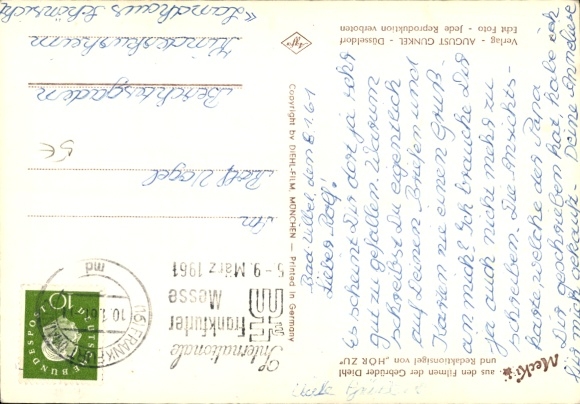 Mecki
aus den Filmen der Gebrüder Diehl
und Redaktionsigel von „HÖR ZU“
Bad Vilbel, den 8.1.61
Lieber Rolf!
Es scheint Dir dort ja sehr
gut zu gefallen. Warum
schreibst Du eigentlich
auf Deinen Briefen und
Karten nie einen Gruß
an mich? Ich brauche Dir
ja auch nicht mehr zu
schreiben. Die Ansichts-
karte, welche der Papa
Dir geschrieben hat, habe ich
für mich gekauft. Deine Annelise
Verlag - AUGUST GUNKEL - Düsseldorf
Echt Foto - Jede Reproduktion verboten
Agfa
Copyright by DIEHL-FILM, MÜNCHEN — Printed in Germany
Internationale
Frankfurter
Messe
5.-9. März 1961
(16) FRANKFURT (MAIN)
10.1.61
md
DEUTSCHE BUNDESPOST
10
An
Rolf Vogel
5€
Berchtesgaden
Kinderkurheim
"Landhaus Schönsicht